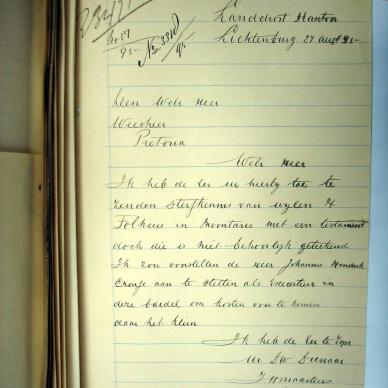 Landdrost Kantoor
Lichtenburg 27 aug 95
No 57
95
No 3310/95
Den Wel. Heer
Weesheer
Pretoria
Wel. Heer
Ik heb de eer U hierby toe te
zenden Sterfkennis van wylen H
en Inventaris met een testament
doch die is niet behoorlyk geteekend
Ik zou voorstellen de heer Johannes Hendrick
Cronje aan te stellen als Executeur in
deze boedel om kosten voor te komen
daar het klein
Ik heb de eer te zyn
UW DW Dienaar